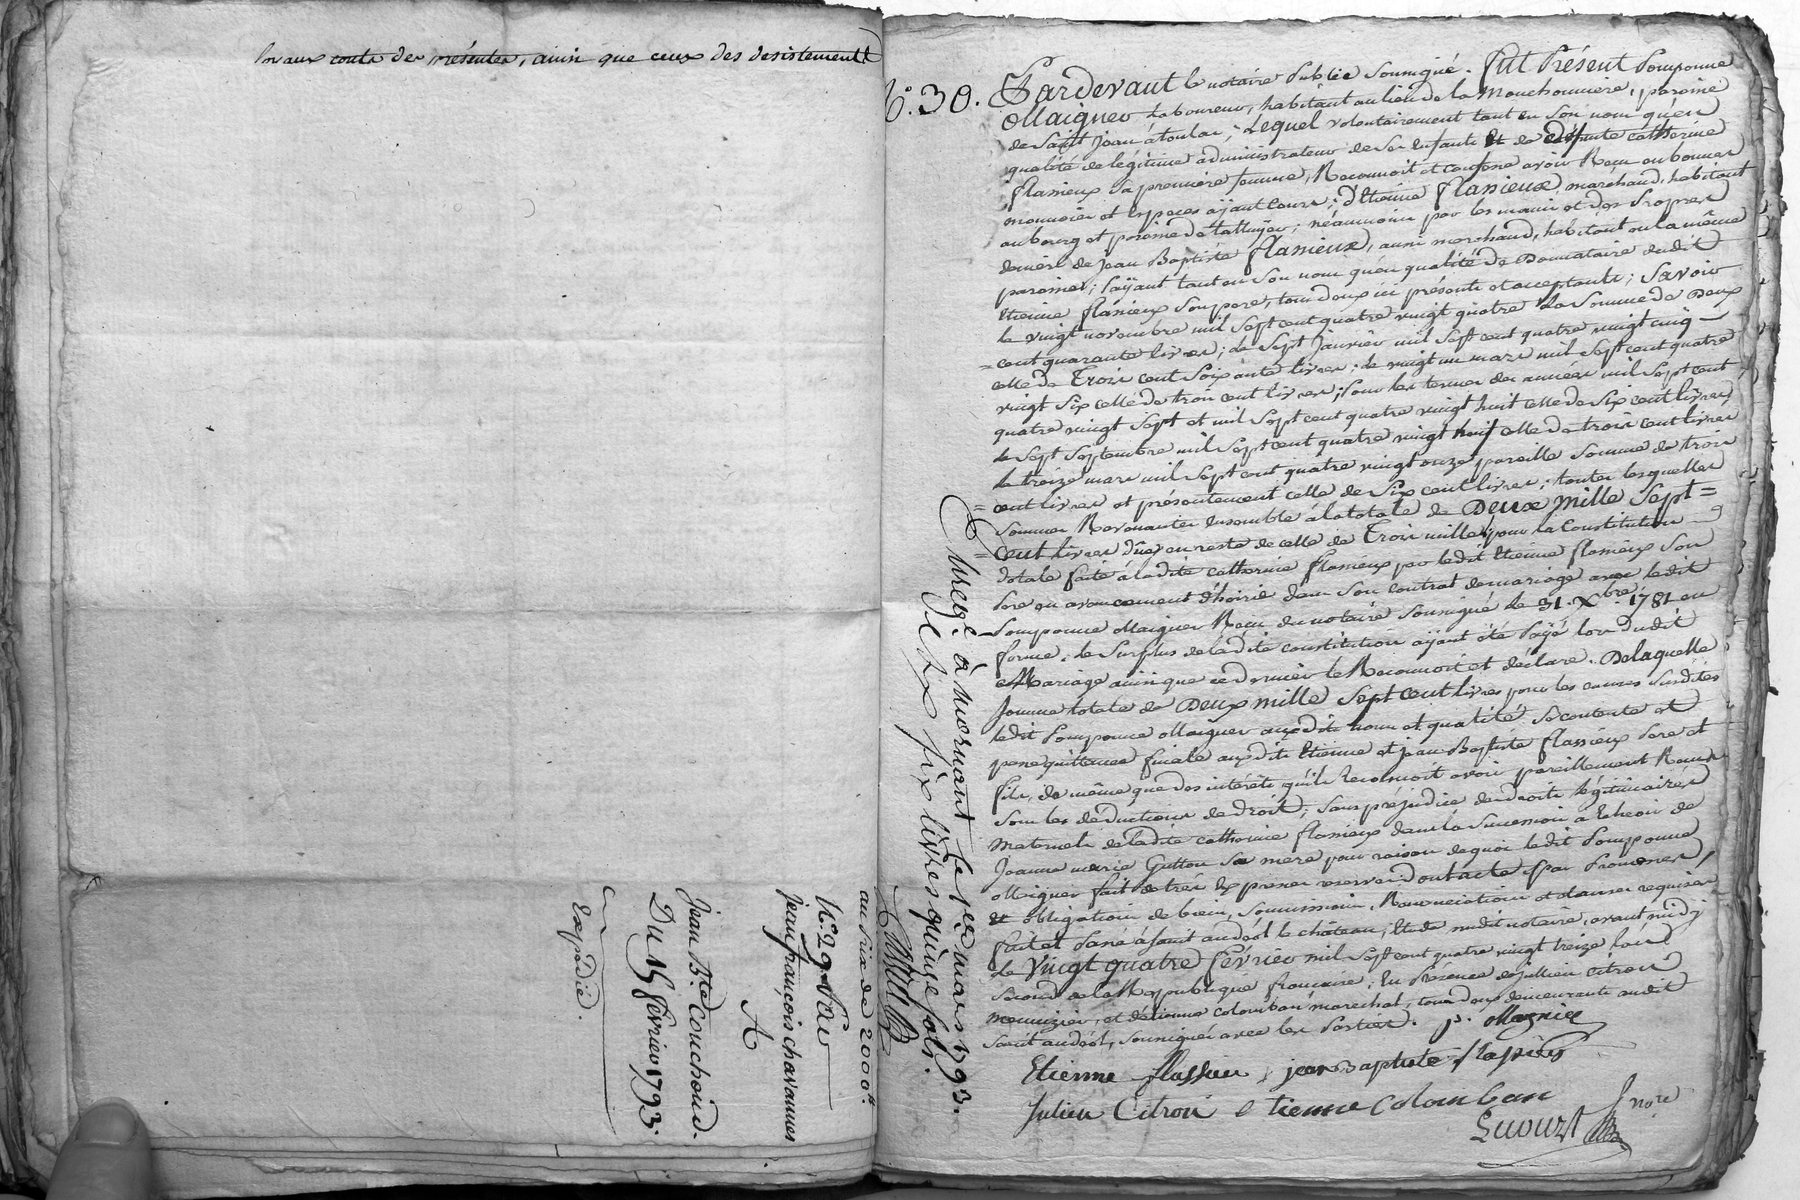 en aux couts des présentes, ainsi que ceux des desistements
au prix de 2000#.
N.° 29. Par
Jean françois chavannes
A
Jean B.te Couchoud.
Du 15 février 1793.
Expédié.
N.° 30. Pardevant le notaire Public soussigné. fut Présent Pomponne
Maignier Laboureur, habitant au lieu de la Mouchonniere, paroisse
de Saint Jean à toulas; Lequel volontairement tant en Son nom qu'en
qualité de légitime administrateur de Ses Enfants Et de défunte catherine
flassieux Sa première femme, Reconnoit et confesse avoir Reçu en bonnes
monnoies et Especes ayant cours; d'Etienne flassieux, marchand, habitant
au bourg et paroisse de talluyer; néanmoins par les mains et des Propres
deniers de Jean Baptiste flassieux, aussi marchand, habitant en la même
paroisse; Payant tant en Son nom qu'en qualité de Donnataire dudit
Etienne flassieux Son pere, tous deux ici présents et acceptants; Savoir
le vingt novembre mil Sept cent quatre vingt quatre La Somme de Deux
= cent quarante livres; le Sept Janvier mil Sept cent quatre vingt cinq
celle de Trois cent Soixante livres; le vingt un mars mil Sept cent quatre
vingt Six celle de trois cent livres; Pour les termes des années mil Sept cent
quatre vingt Sept et mil Sept cent quatre vingt huit celle de Six cent livres;
le Sept Septembre mil Sept cent quatre vingt neuf celle de trois cent livres
le treize mars mil Sept cent quatre vingt onze pareille Somme de trois
= cent livres et présentement celle de Six cent livres; toutes lesquelles
Sommes Revenantes Ensemble à la totale de Deux Mille Sept =
= Cent livres Dües en reste de celle de Trois mille pour la Constitution
dotale faite à ladite catherine flassieux par ledit Etienne flassieux Son
Pere en avancement d'hoirie dans Son contrat de mariage avec ledit
Pomponne Maignier Reçu du notaire Soussigné le 31. Xbre. 1781 en
forme; le Surplus de ladite constitution ayant été Payé lors dudit
Mariage ainsi que ce dernier le Reconnoit et déclare. De laquelle
Somme totale de Deux mille Sept Cent livres pour les causes Susdites
ledit Pomponne Maignier auxdits noms et qualité Se contente et
passe quittance finale auxdits Etienne et jean Baptiste flassieux Pere et
fils, de même que des intérêts qu'il Reconnoit avoir pareillement Reçus
Sous les déductions de droit; Sans préjudice des droits légitimaires
Maternels de ladite catherine flassieux dans la Succession à Echeoir de
Jeanne marie Guttou Sa mere pour raison de quoi ledit Pomponne
Maignier fait de très Expresses reserves. Dont acte par Promesses,
Et obligations de biens, Soumissions, Renonciations et clauses requises
fait et Passé à Saint andéol le château, Etude dudit notaire, avant midy
le Vingt quatre février mil Sept cent quatre vingt treize L'an
Second de la République françoise; En Présence de jullien citron
menuizier, et d'étienne colomban marechal, tous deux demeurants audit
Saint andéol, Soussignés avec les Parties. P. Magnier
Etienne flassieu jean Baptiste flassieux
Julien Citron etienne Colomban
nore
Enreg.é à mornant le p.er mars 1793.
dix livres quinze sols.